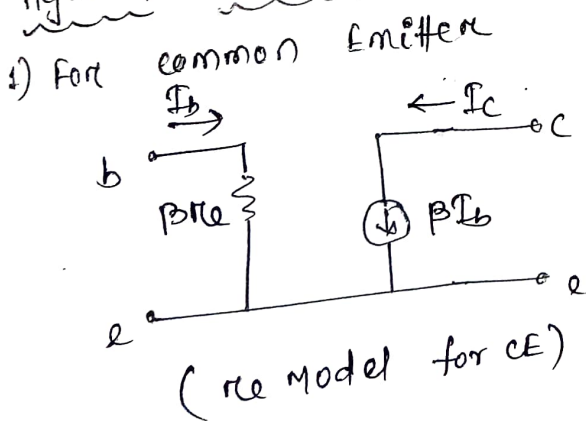 1) For common Emitter
Ib
← Ic
b
c
βre
βIb
e
e
(re Model for CE)